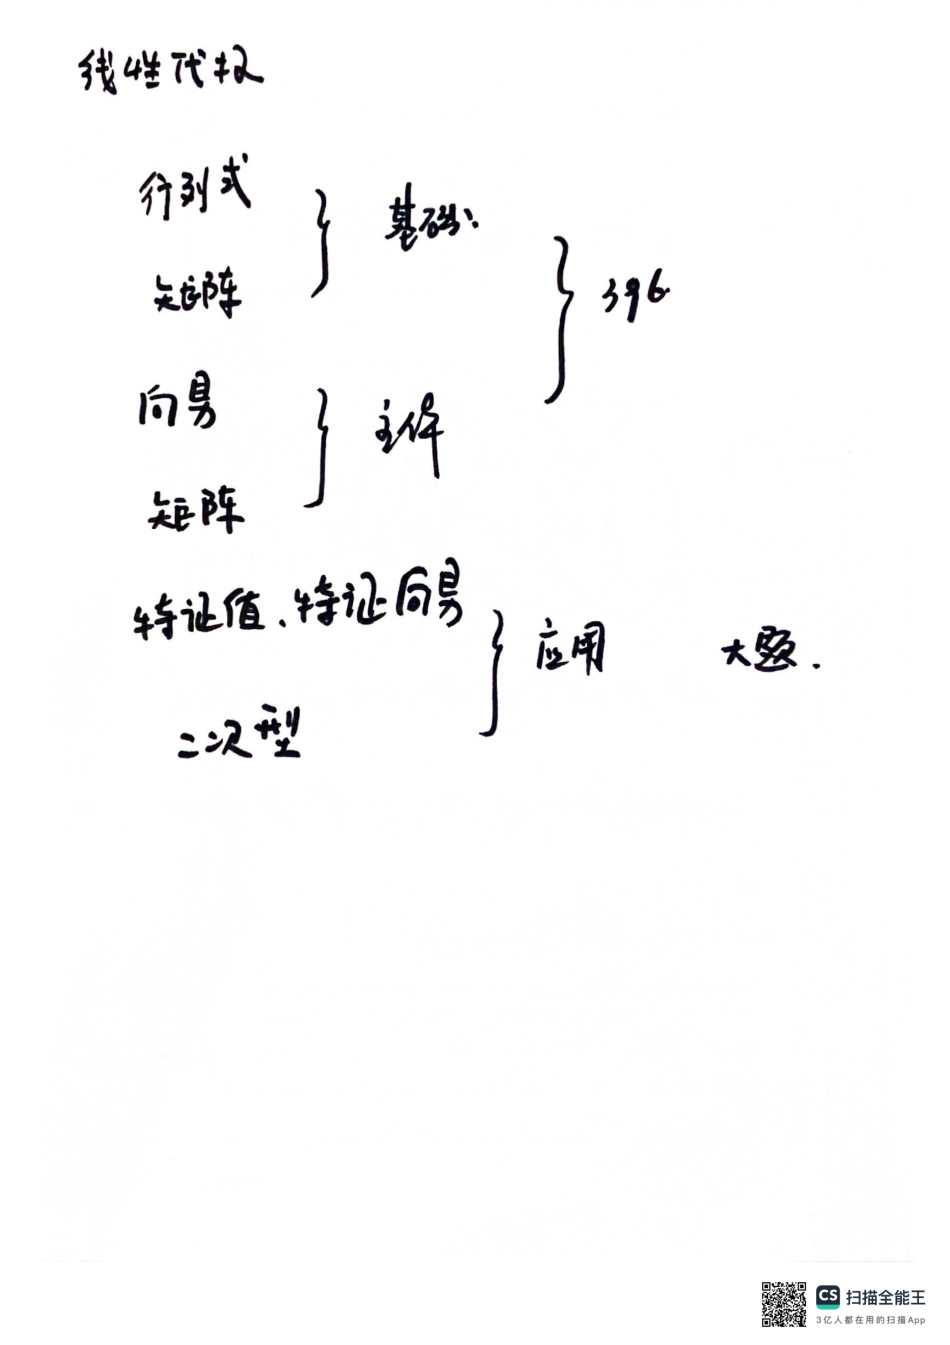 线性代数
行列式
基础:
矩阵
396
向量
主体
矩阵
特征值、特征向量
应用 大题.
二次型
CS 扫描全能王
3亿人都在用的扫描App